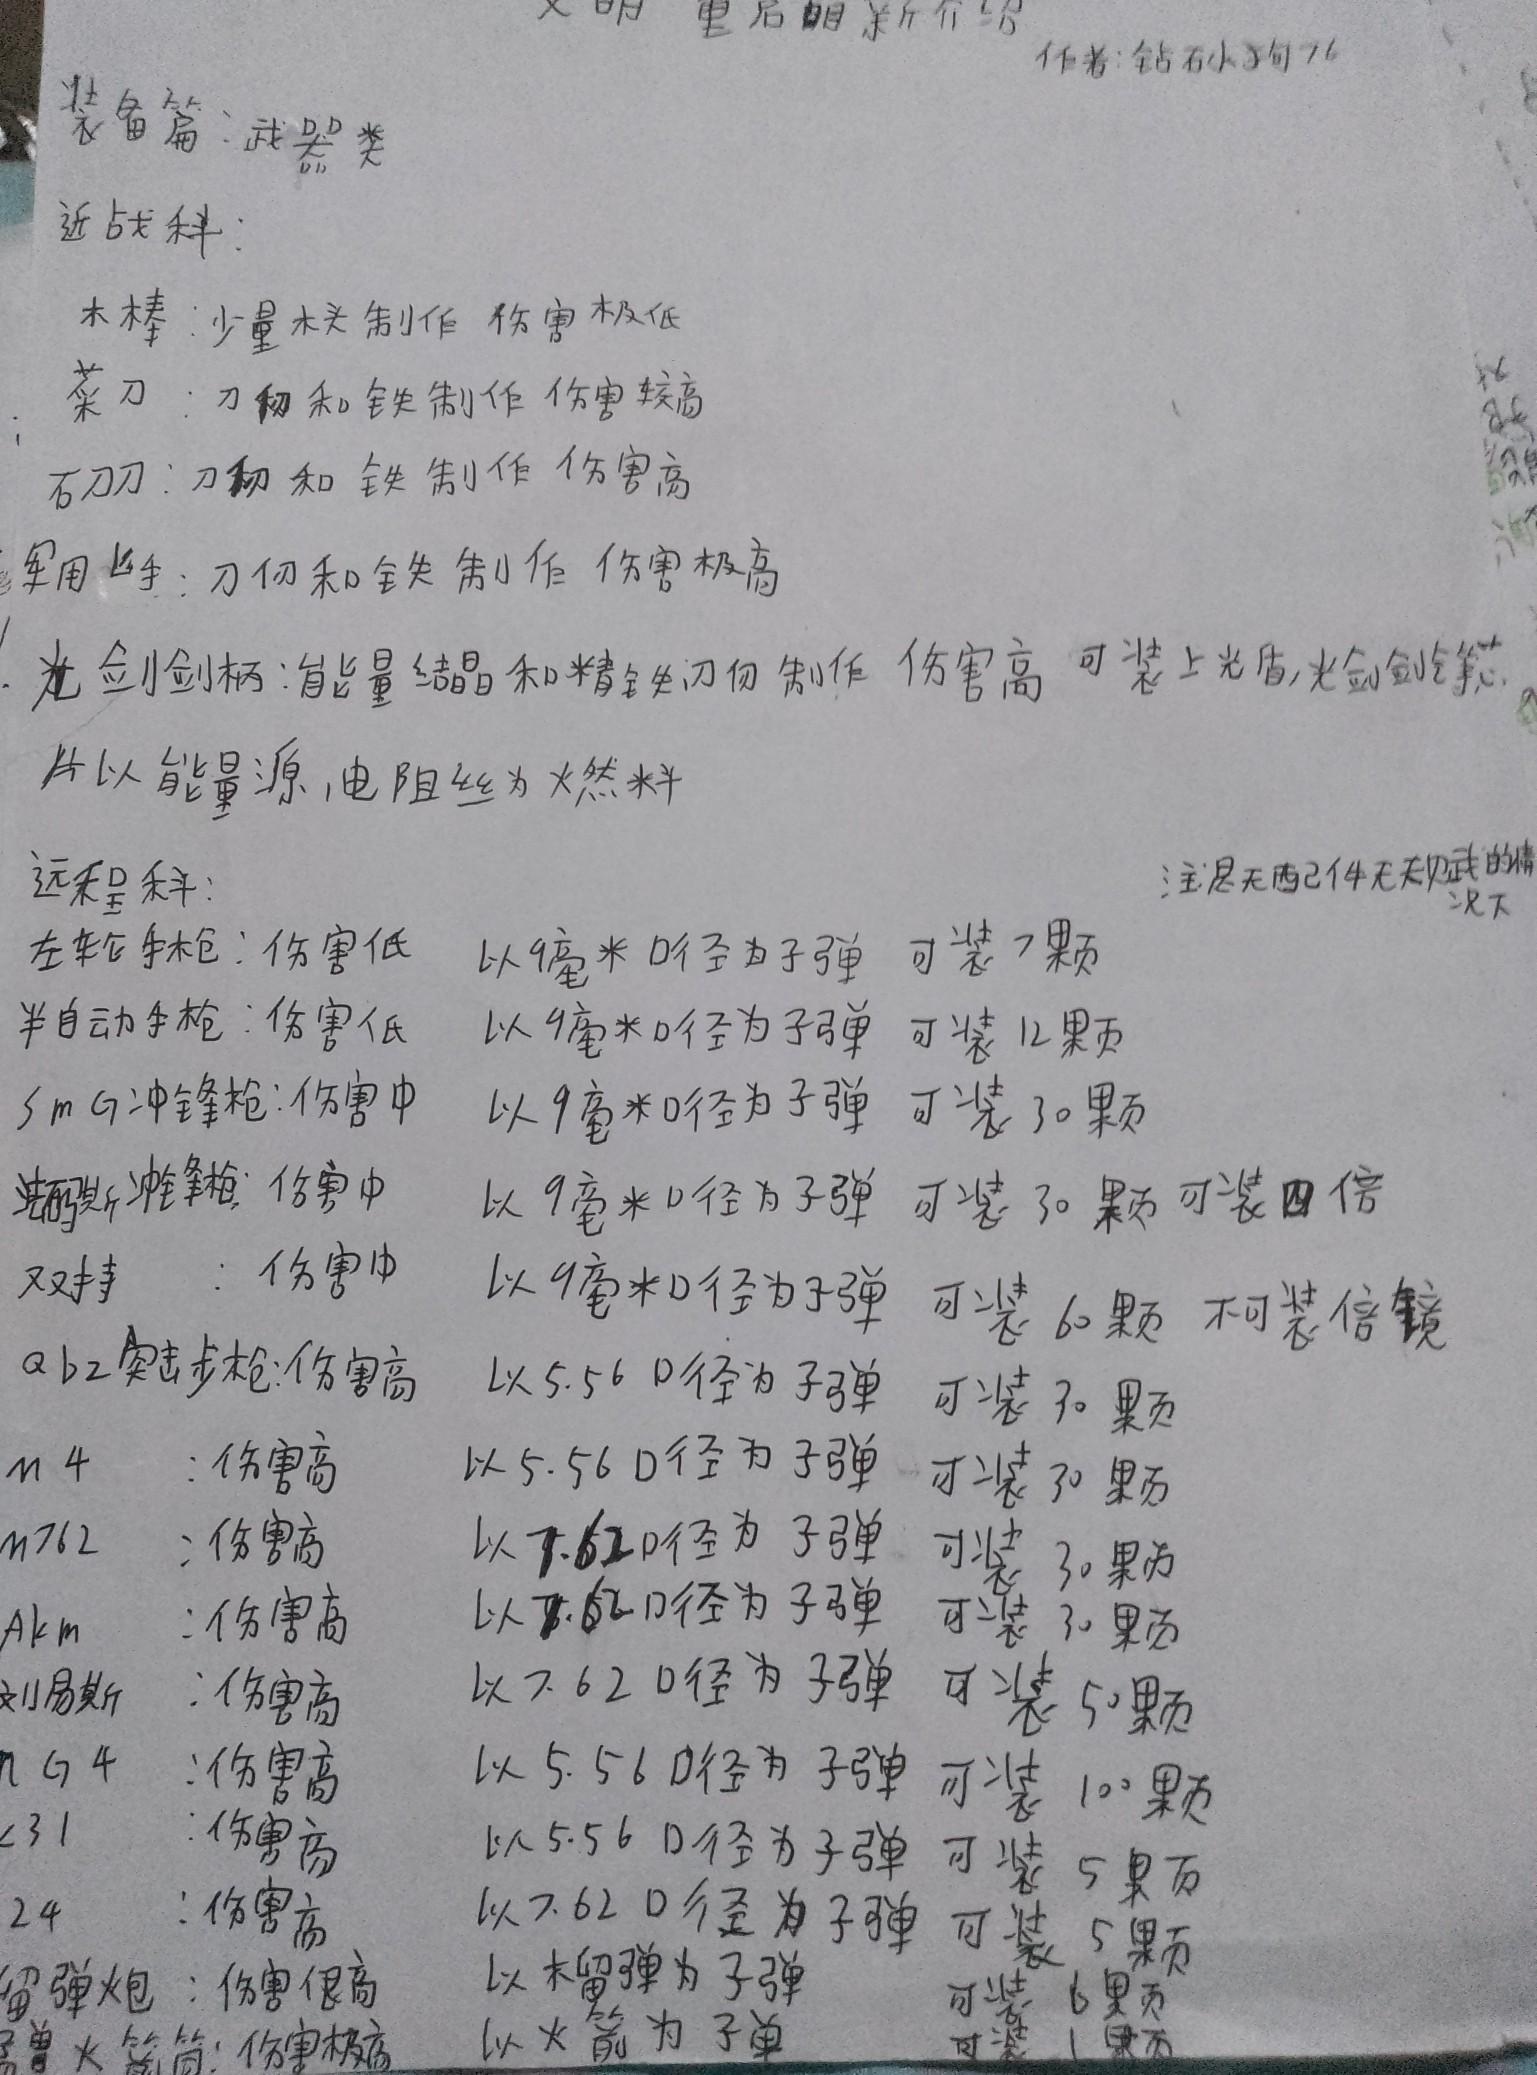 文明重启最新介绍
作者:钻石小
装备篇:武器类
近战科:
木棒:少量木头制作 伤害极低
菜刀:刀仞和铁制作 伤害较高
石刀刀:刀仞和铁制作 伤害高
军用匕手:刀仞和铁制作 伤害极高
光剑剑柄:能量结晶和精铁刀仞制作 伤害高 可装上光盾,光剑剑
片以能量源,电阻丝为燃料
远程科:
注:是无配件无天赋的情
况下
左轮手枪:伤害低 以9毫米口径为子弹 可装7颗
半自动手枪:伤害低 以9毫米口径为子弹 可装12颗
SmG冲锋枪:伤害中 以9毫米口径为子弹 可装30颗
冲锋枪:伤害中 以9毫米口径为子弹 可装30颗可装四倍
双持:伤害中 以9毫米口径为子弹 可装60颗 不可装倍镜
Qbz突击步枪:伤害高 以5.56口径为子弹 可装30颗
m4:伤害高 以5.56口径为子弹 可装30颗
m762:伤害高 以7.62口径为子弹 可装30颗
Akm:伤害高 以7.62口径为子弹 可装30颗
刘易斯:伤害高 以7.62口径为子弹 可装50颗
G4:伤害高 以5.56口径为子弹 可装100颗
31:伤害高 以5.56口径为子弹 可装5颗
24:伤害高 以7.62口径为子弹 可装5颗
留弹炮:伤害很高 以榴弹为子弹 可装6颗
火箭筒:伤害极高 以火箭为子弹 可装1颗